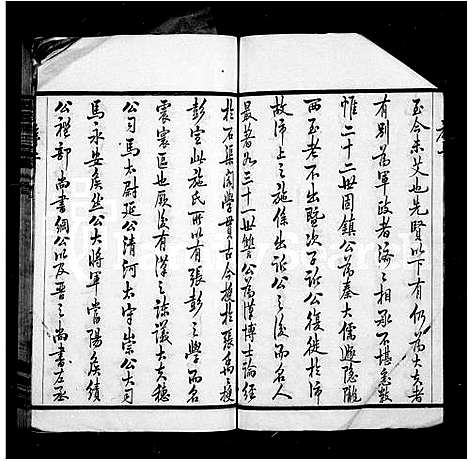 至今未艾也先賢以下有仍為大夫者
有別為軍政者海之相承不堪悉數
惟二十二世圉鎮公為秦大儒遯隱隴
西至老不出暨次子訢公復徙於沛
故沛上之施係出訢公之後而名人
最著如三十一世讐公為漢博士論經
於石渠閣學貫古今授於張禹授
彭宣此施氏所以有張彭之學而名
震寰區也厥後有漢之諫議大夫穗
公司馬太尉延公清河太守崇公大司
馬永安侯丝公大將軍當陽侯績
公禮部尚書綱公以及晋之尚書左丞